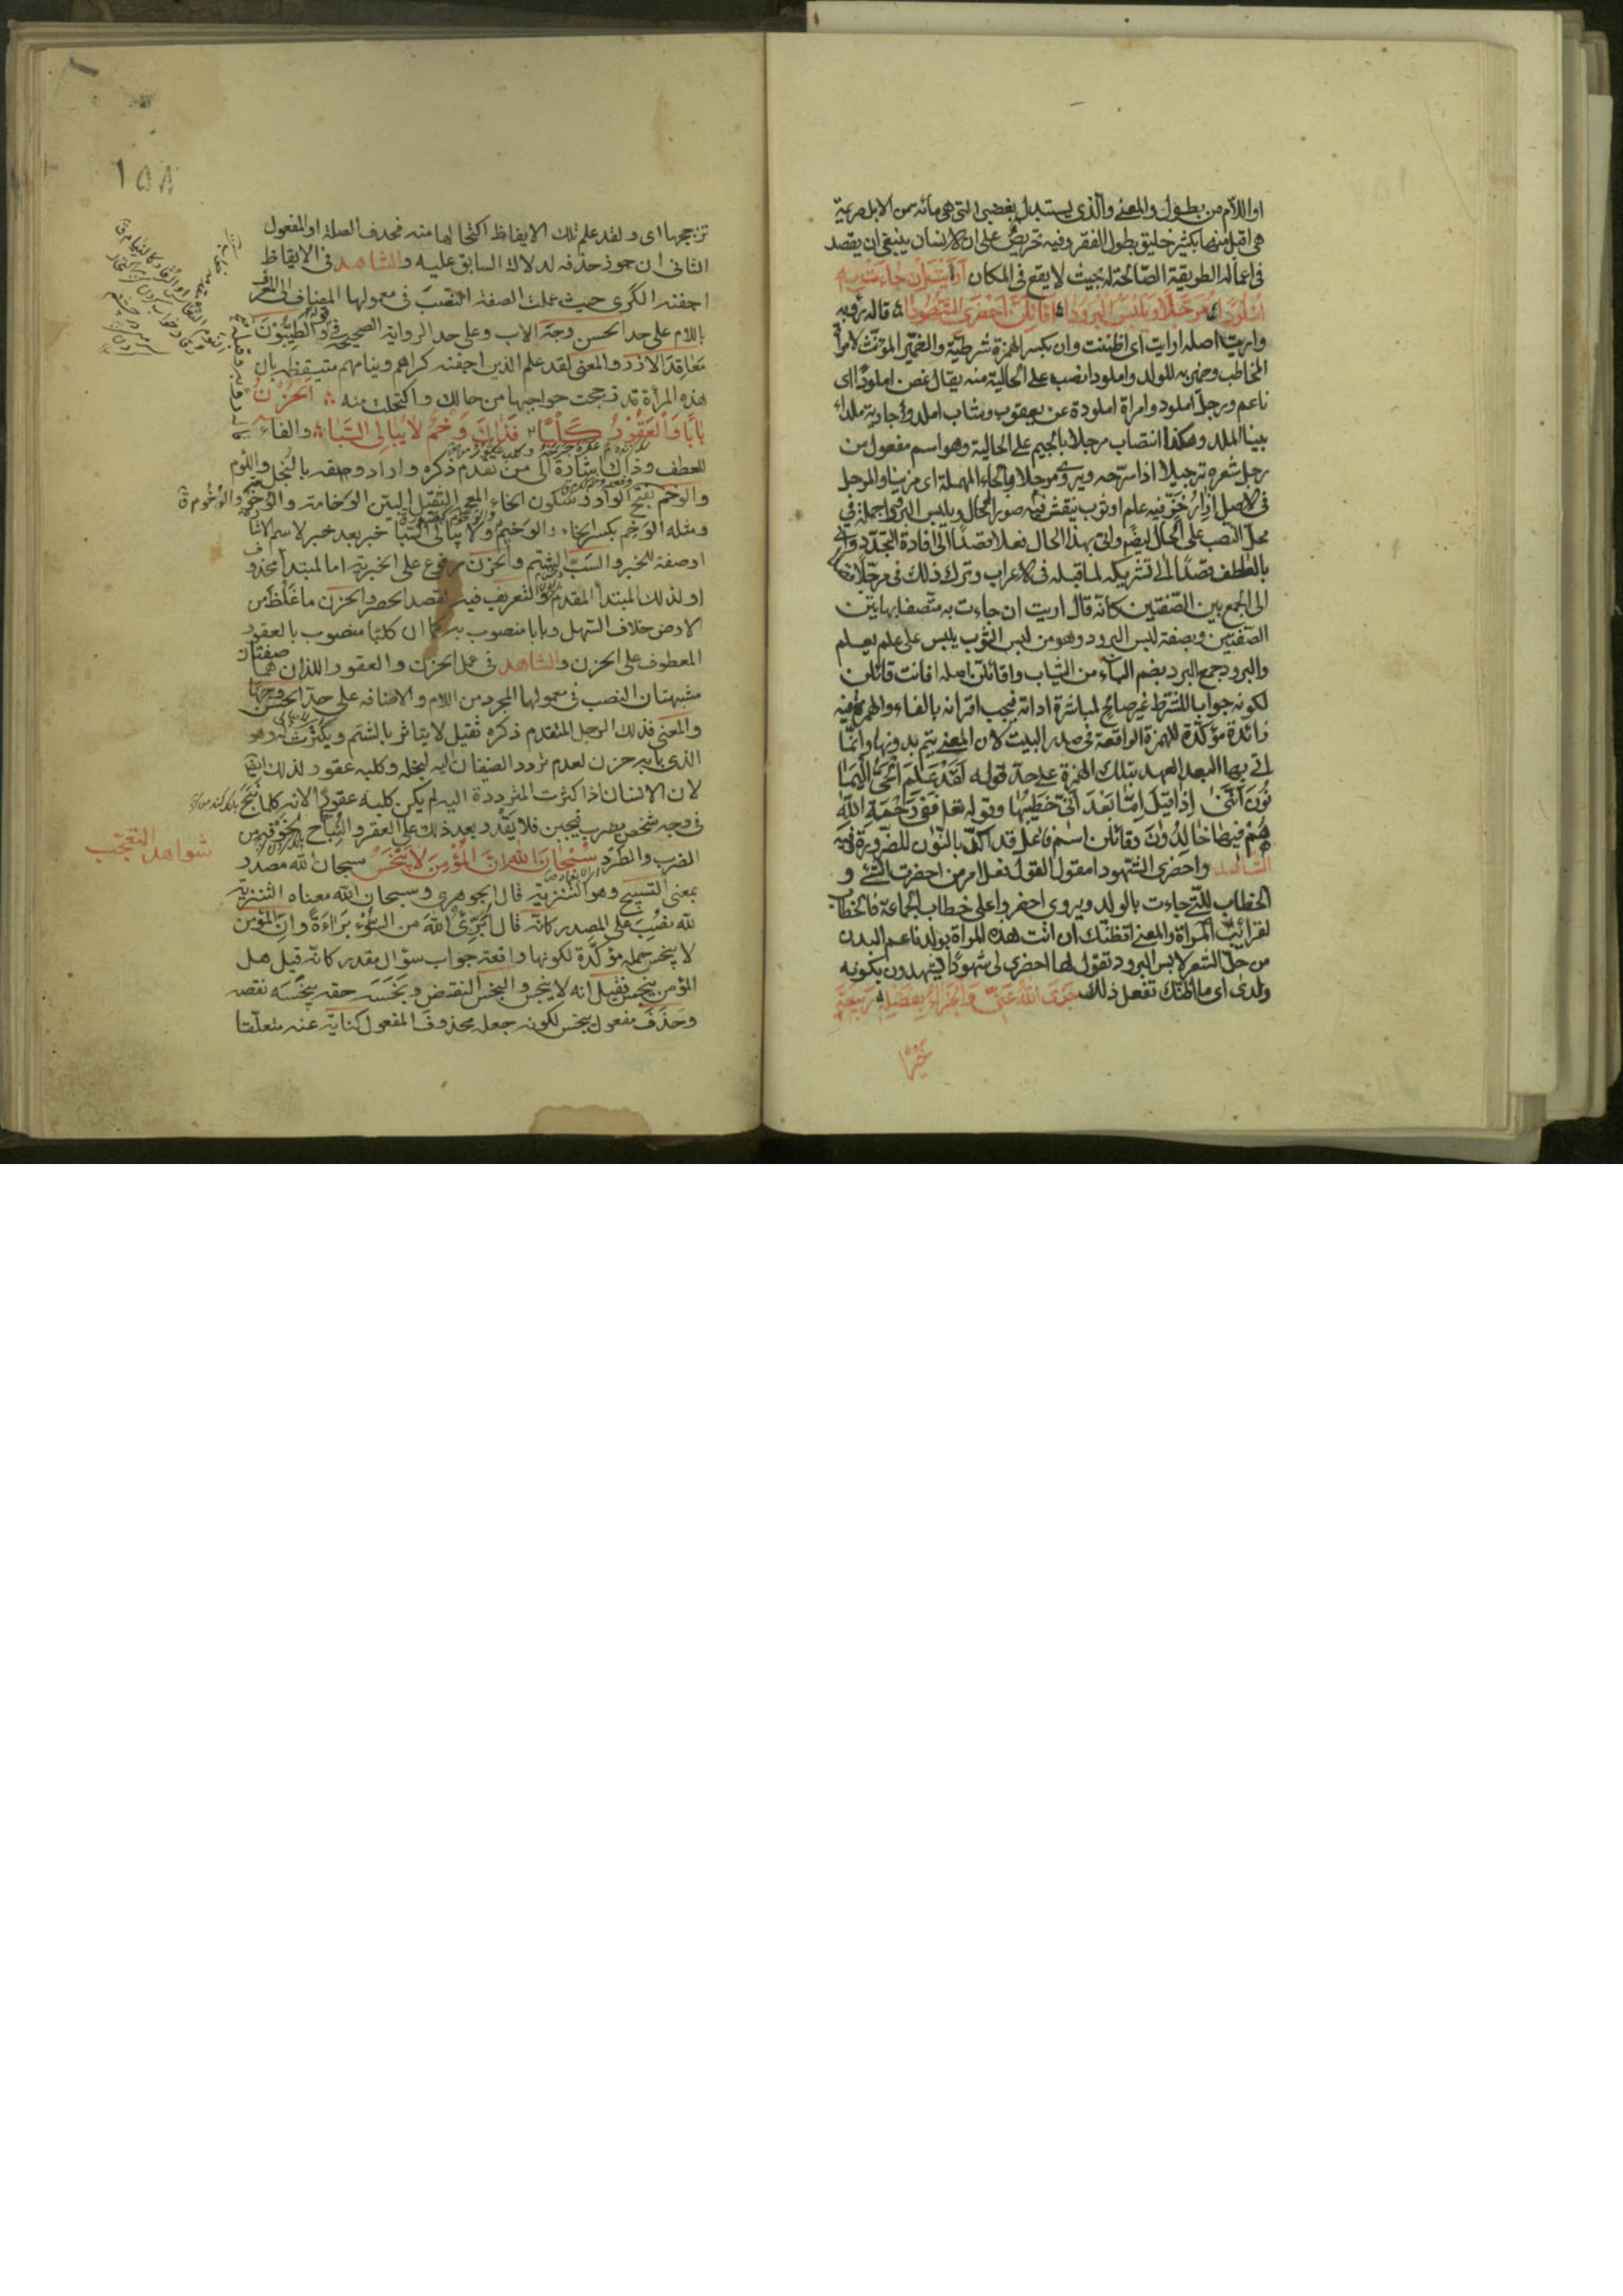 او اللام من بطول والمعنى والذى يستبدل بغضبى التى هى مائة من الابل صريمة
هى اقل منها بكثير خليق بطول الفقر وفيه تحريض على ان الانسان ينبغى ان يقصد
فى اعماله الطريقة الصالحة بحيث لا يقع فى المكان أرأيت إن جاءت به
املودا مرجلا ويلبس البرودا اقائلن احضرى الشهودا قاله رؤبة
واريت اصله ارايت اى اظننت وان بكسر الهمزة شرطية والضمير المؤنث لامرأة
المخاطب وضمير به للولد واملودا نصب على الحالية منه يقال غصن املود اى
ناعم ورجل املود وامراة املودة عن يعقوب وشاب املد وجارية ملداء
بينا الملد وهكذا انتصاب مرجلا بالجيم على الحالية وهو اسم مفعول من
رجل شعره ترجيلا اذا سرحه ويروى مرحلا بالحاء المهملة اى مزينا والمرحل
فى الاصل ازار خز فيه علم او ثوب ينقش فيه صور الرحال ويلبس البرود جملة فى
محل النصب على الحال ايضا واتى بهذا الحال فعلا قصدا الى افادة التجدد واتى
بالعطف قصدا الى تشريكه لما قبله فى الاعراب وترك ذلك فى مرجلا
الى الجمع بين الصفتين كانه قال اريت ان جاءت به متصفا بهاتين
الصفتين وبصفة لبس البرود وهو من لبس الثوب يلبس على علم يعلم
والبرود جمع البرد بضم الباء من الثياب واقائلن اصله افانت قائلن
لكونه جوابا للشرط غير صالح لمباشرة اداته فيجب اقترانه بالفاء والهمزة فيه
زائدة مؤكدة للهمزة الواقعة فى صدر البيت لان المعنى يتم بدونها وانما
اتى بها لبعد العهد بتلك الهمزة على حد قوله لقد علم الحى اليمانون
اننى اذا قيل اما بعد انى خطيبها وقوله تعالى ففى رحمة الله
هم فيها خالدون وقائلن اسم فاعل قد اكد بالنون للضرورة وفيه
الشاهد واحضرى الشهودا مقول القول فعل امر من احضرت الشئ و
الخطاب للتى جاءت بالولد ويروى احضروا على خطاب الجماعة فالخطاب
لقرائب المرأة والمعنى اتظنك ان اتت هذه المرأة بولد ناعم البدن
مرجل الشعر لابس البرود تقول لها احضرى لى شهودا يشهدون بكونه
ولدى اى ما اظنك تفعل ذلك جزى الله عنى والجزاء بفضله ربيعة
خيرا
١٥٨
تزججها اى ولقد علم تلك الايقاظ اكتحالها منه فحذف الصلة او المفعول
الثانى ان جوز حذفه لدلالة السابق عليه والشاهد فى الايقاظ
اجفنه الكرى حيث عملت الصفة النصب فى معمولها المضاف الى المعرف
باللام على حد الحسن وجه الاب وعلى حد الرواية الصحيحة فى قوله والطيبون
معاقد الازر والمعنى لقد علم الذين اجفنه كراهم وينامهم متيقظه بان
هذه المرأة قد زججت حواجبها من حالك واكتحلت منه الحزن
بابا والعقور كلبا فذاك وخم لا يبالى السبا والفاء
للعطف وذاك اشارة الى من تقدم ذكره واراد وصفه بالبخل واللوم
والوخم بفتح الواو وسكون الخاء المعجمة الثقيل البين الوخامة والوخومة
ومثله الوخم بكسر الخاء والوخيم ولا يبالى السبا خبر بعد خبر لاسم الاشارة
او صفة للخبر والسب الشتم والحزن مرفوع على الخبرية اما لمبتدأ محذوف
او لذلك المبتدأ المقدم والتعريف فيه لقصد الحصر والحزن ما غلظ من
الارض خلاف السهل وبابا منصوب به كما ان كلبا منصوب بالعقور
المعطوف على الحزن والشاهد فى عمل الحزن والعقور اللذان هما صفتان
مشبهتان النصب فى معمولها المجرد من اللام والاضافة على حد الحسن وجها
والمعنى فذلك الرجل المتقدم ذكره ثقيل لا يتاثر بالشتم ويكترث له وهو
الذى بابه حزن لعدم تردد الضيفان اليه لبخله وكلبه عقور لذلك ايضا
لان الانسان اذا كثرت المترددة اليه لم يكن كلبه عقورا لانه كلما نبح
فى وجه شخص يضرب فيجبن فلا يقدر بعد ذلك على العقر والنباح لخوفه من
الضرب والطرد سبحان الله ان المؤمن لا ينجس سبحان الله مصدر
بمعنى التسبيح وهو التنزيه قال الجوهرى وسبحان الله معناه التنزيه
لله نصب على المصدر كانه قال ابرئ الله من السوء براءة وان المؤمن
لا ينجس جملة مؤكدة لكونها واقعة جواب سؤال مقدر كانه قيل هل
المؤمن ينجس فقيل انه لا ينجس والبخس النقص وبخسه حقه يبخسه نقصه
وحذف مفعول يبخس لكونه جعله محذوف المفعول كناية عنه متعلقا
شواهد التعجب